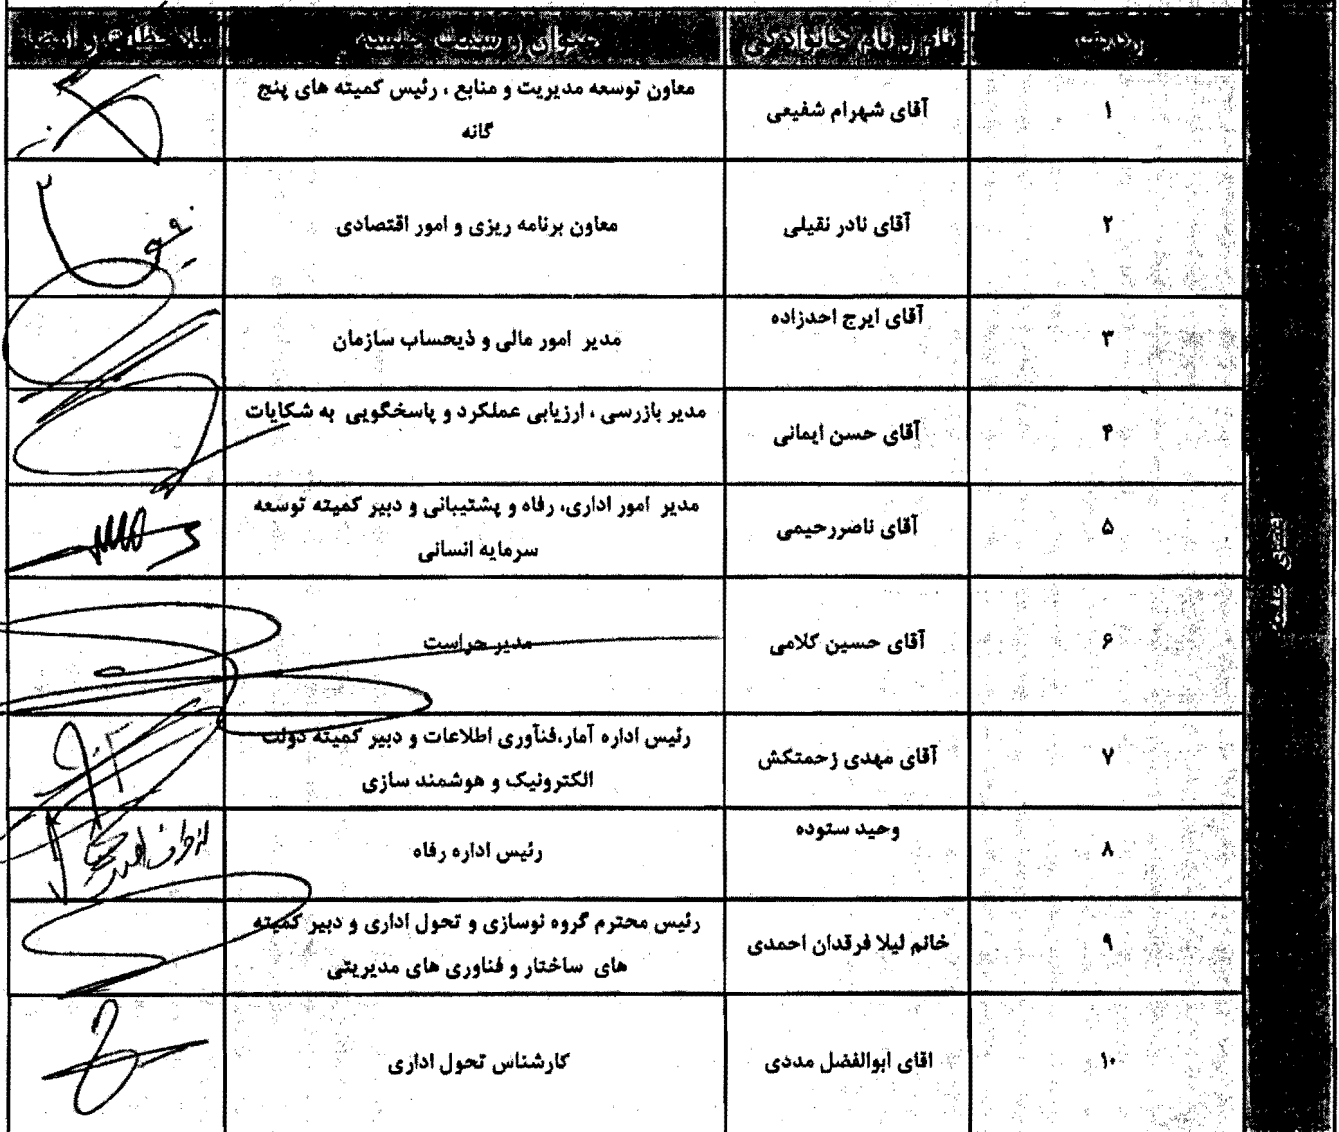 ردیف
نام و نام خانوادگی
عنوان و سمت
۱
آقای شهرام شفیعی
معاون توسعه مدیریت و منابع ، رئیس کمیته های پنج
گانه
۲
آقای نادر نقیلی
معاون برنامه ریزی و امور اقتصادی
۳
آقای ایرج احدزاده
مدیر امور مالی و ذیحساب سازمان
۴
آقای حسن ایمانی
مدیر بازرسی ، ارزیابی عملکرد و پاسخگویی به شکایات
۵
آقای ناصررحیمی
مدیر امور اداری، رفاه و پشتیبانی و دبیر کمیته توسعه
سرمایه انسانی
۶
آقای حسین کلامی
مدیر حراست
۷
آقای مهدی زحمتکش
رئیس اداره آمار،فنآوری اطلاعات و دبیر کمیته دولت
الکترونیک و هوشمند سازی
۸
وحید ستوده
رئیس اداره رفاه
از طرف
۹
خانم لیلا فرقدان احمدی
رئیس محترم گروه نوسازی و تحول اداری و دبیر کمیته
های ساختار و فناوری های مدیریتی
۱۰
اقای ابوالفضل مددی
کارشناس تحول اداری